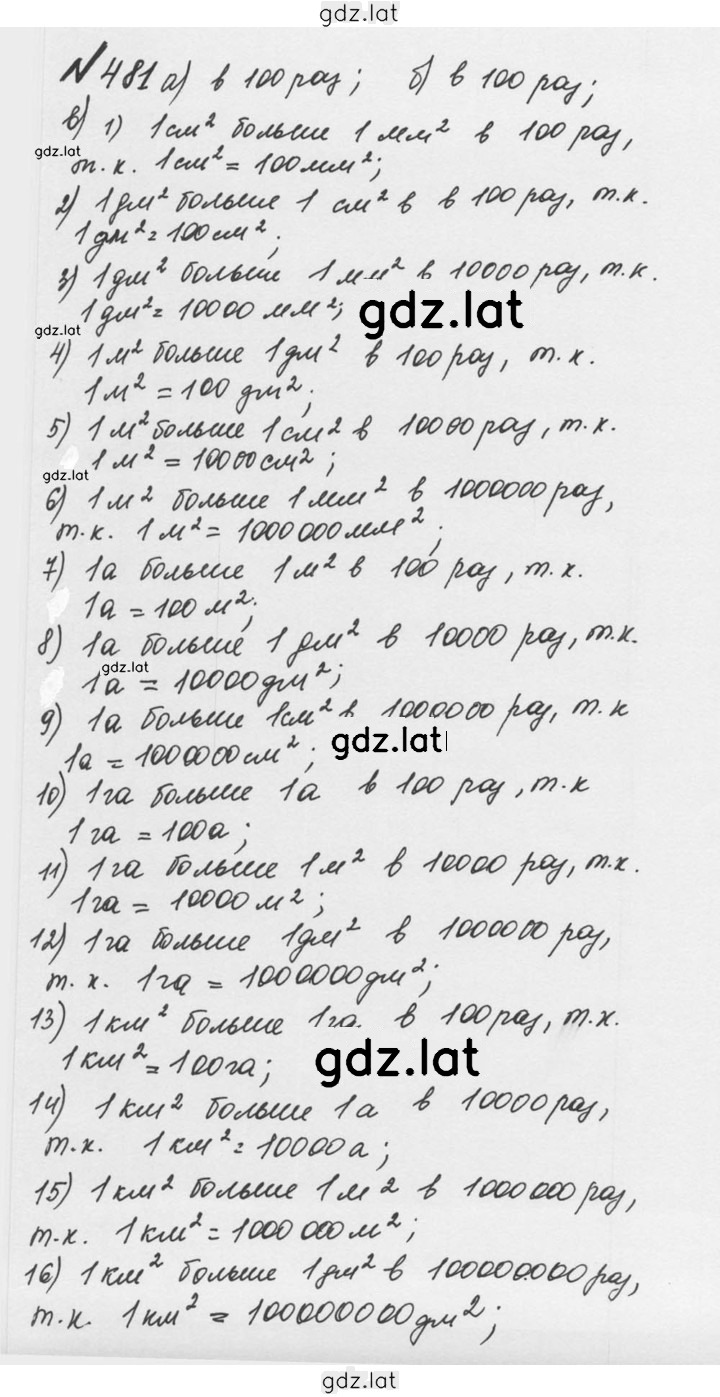 gdz.lat
N 481 а) в 100 раз; б) в 100 раз;
в) 1) 1 см² больше 1 мм² в 100 раз,
gdz.lat
т.к. 1 см² = 100 мм²;
2) 1 дм² больше 1 см² в в 100 раз, т.к.
1 дм² = 100 см²;
3) 1 дм² больше 1 мм² в 10000 раз, т.к.
1 дм² = 10000 мм²; gdz.lat
gdz.lat
4) 1 м² больше 1 дм² в 100 раз, т.к.
1 м² = 100 дм²;
5) 1 м² больше 1 см² в 10000 раз, т.к.
1 м² = 10000 см²;
gdz.lat
6) 1 м² больше 1 мм² в 1000000 раз,
т.к. 1 м² = 1000000 мм²;
7) 1а больше 1 м² в 100 раз, т.к.
1а = 100 м²;
8) 1а больше 1 дм² в 10000 раз, т.к.
gdz.lat
1а = 10000 дм²;
9) 1а больше 1 см² в 1000000 раз, т.к
1а = 1000000 см²; gdz.lat
10) 1 га больше 1а в 100 раз, т.к
1 га = 100а;
11) 1 га больше 1 м² в 10000 раз, т.к.
1 га = 10000 м²;
12) 1 га больше 1 дм² в 1000000 раз,
т.к. 1 га = 1000000 дм²;
13) 1 км² больше 1 га в 100 раз, т.к.
1 км² = 100 га; gdz.lat
14) 1 км² больше 1а в 10000 раз,
т.к. 1 км² = 10000 а;
15) 1 км² больше 1 м² в 1000000 раз,
т.к. 1 км² = 1000000 м²;
16) 1 км² больше 1 дм² в 100000000 раз,
т.к. 1 км² = 100000000 дм²;
gdz.lat